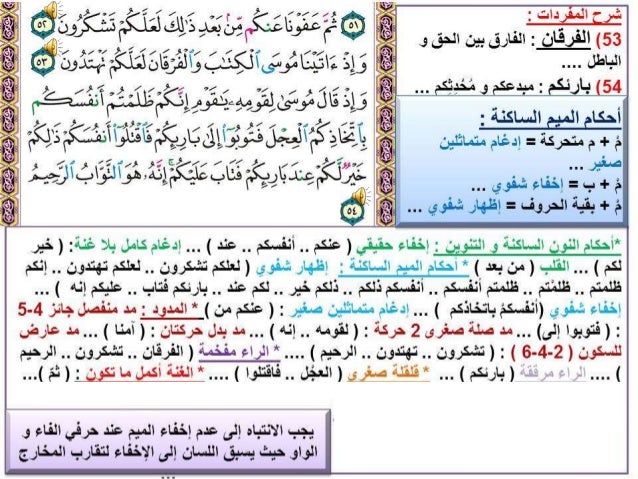 شرح المفردات :
53) الفرقان : الفارق بين الحق و
الباطل ....
54) بارئكم : مبدعكم و مُحْدِثِكم ...
أحكام الميم الساكنة :
مْ + م متحركة = إدغام متماثلين
صغير ...
مْ + ب = إخفاء شفوي ...
مْ + بقية الحروف = إظهار شفوي ...
٥١ ثُمَّ عَفَوْنَا عَنكُم مِّنۢ بَعْدِ ذَٰلِكَ لَعَلَّكُمْ تَشْكُرُونَ ٥٢
وَإِذْ ءَاتَيْنَا مُوسَى ٱلْكِتَٰبَ وَٱلْفُرْقَانَ لَعَلَّكُمْ تَهْتَدُونَ ٥٣
وَإِذْ قَالَ مُوسَىٰ لِقَوْمِهِۦ يَٰقَوْمِ إِنَّكُمْ ظَلَمْتُمْ أَنفُسَكُم
بِٱتِّخَاذِكُمُ ٱلْعِجْلَ فَتُوبُوٓا۟ إِلَىٰ بَارِئِكُمْ فَٱقْتُلُوٓا۟ أَنفُسَكُمْ ذَٰلِكُمْ
خَيْرٌ لَّكُمْ عِندَ بَارِئِكُمْ فَتَابَ عَلَيْكُمْ إِنَّهُۥ هُوَ ٱلتَّوَّابُ ٱلرَّحِيمُ
٥٤
*أحكام النون الساكنة و التنوين : إخفاء حقيقي ( عنكم .. أنفسكم .. عند ) ... إدغام كامل بلا غنة: ( خير
لكم ) ... القلب ( من بعد ) * أحكام الميم الساكنة : إظهار شفوي ( لعلكم تشكرون .. لعلكم تهتدون .. إنكم
ظلمتم .. ظلمْتم .. ظلمتم أنفسكم .. أنفسكم ذلكم .. ذلكم خير .. لكم عند .. بارئكم فتاب .. عليكم إنه ) ...
إخفاء شفوي (أنفسكمْ باتخاذكم ) ... إدغام متماثلين صغير : ( عنكم من) * المدود : مد منفصل جائز 4-5
: ( فتوبوا إلى) ... مد صلة صغرى 2 حركة : ( لقومه .. إنه ) ... مد بدل حركتان : ( آمنا ) ... مد عارض
للسكون ( 2-4-6 ) : ( تشكرون .. تهتدون .. الرحيم ) .... * الراء مفخمة ( الفرقان .. تشكرون .. الرحيم
) .... الراء مرققة ( بارئكم ) ... * قلقلة صغرى ( العجْل .. فاقتلوا ) .... * الغنة أكمل ما تكون : ( ثمّ )...
يجب الانتباه إلى عدم إخفاء الميم عند حرفي الفاء و
الواو حيث يسبق اللسان إلى الإخفاء لتقارب المخارج
...